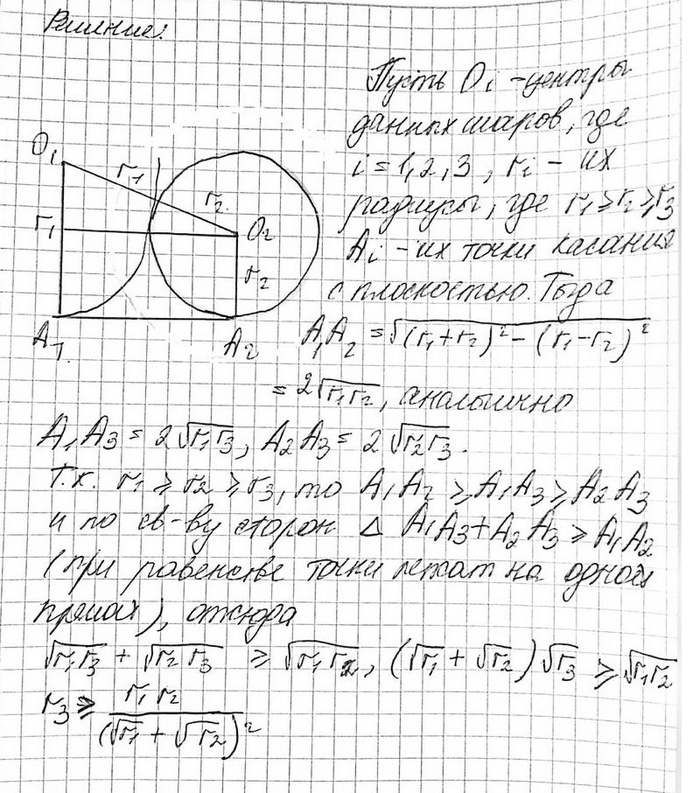 Решение:
Пусть Oi - центры
данных шаров, где
i = 1, 2, 3, ri - их
радиусы, где r1 ≥ r2 ≥ r3
Ai - их точки касания
с плоскостью. Тогда
O1
r1
r2
r1
O2
r2
A1
A2
A1A2 = √((r1+r2)² - (r1-r2)²)
= 2√(r1r2), аналогично
A1A3 = 2√(r1r3), A2A3 = 2√(r2r3).
Т.к. r1 ≥ r2 ≥ r3, то A1A2 ≥ A1A3 ≥ A2A3
и по св-ву сторон Δ A1A3 + A2A3 ≥ A1A2
(при равенстве точки лежат на одной
прямой), отсюда
√(r1r3) + √(r2r3) ≥ √(r1r2), (√r1 + √r2)√r3 ≥ √(r1r2)
r3 ≥ r1r2 / (√r1 + √r2)²